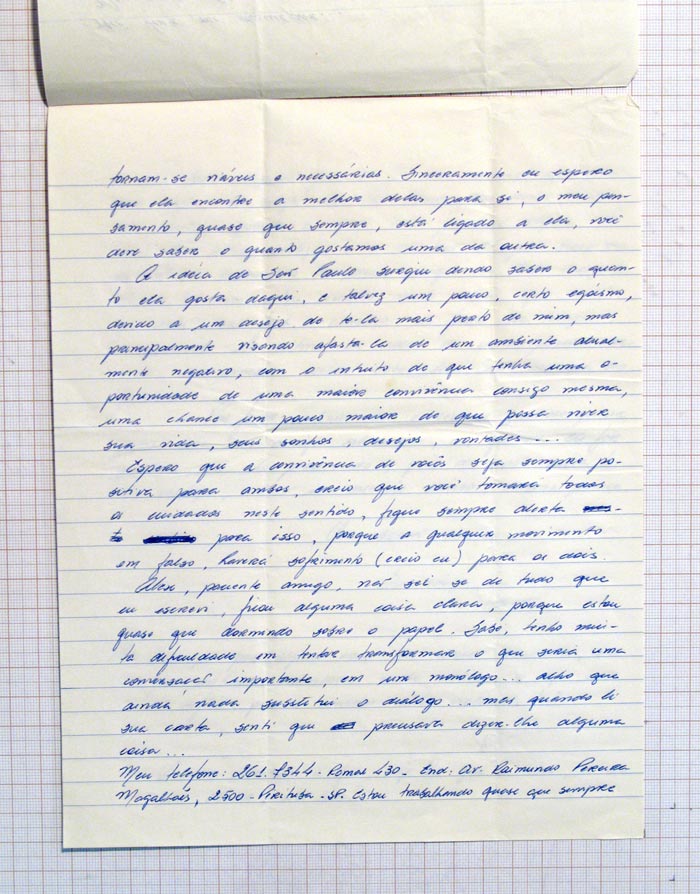 tornam-se viáveis e necessárias. Sinceramente eu espero
que ela encontre a melhor delas para si, o meu pen-
samento, quase que sempre, está ligado a ela, você
deve saber o quanto gostamos uma da outra.
A idéia de São Paulo surgiu dendo saber o quan-
to ela gosta daqui, e talvez um pouco, certo egoismo,
devido a um desejo de te-la mais perto de mim, mas
principalmente visando afasta-la de um ambiente atual-
mente negativo, com o intuito de que tenha uma o-
portunidade de uma maior convivência consigo mesma,
uma chance um pouco maior de que possa viver
sua vida, seus sonhos, desejos, vontades...
Espero que a convivência de vocês seja sempre po-
sitiva para ambos, creio que você tomará todos
os cuidados neste sentido, fique sempre alerta
para isso, porque a qualquer movimento
em falso, haverá sofrimento (creio eu) para os dois.
Alex, paciente amigo, não sei se de tudo que
eu escrevi, ficou alguma coisa clara, porque estou
quase que dormindo sobre o papel. Sabe, tenho mui-
ta dificuldade em tentar transformar o que seria uma
conversação importante, em um monólogo... acho que
ainda nada substitui o diálogo... mas quando li
sua carta, senti que precisava dizer-lhe alguma
coisa...
Meu telefone: 261.7344 - Ramal 430 - End: Av. Raimundo Pereira
Magalhães, 2500 - Pirituba - SP. Estou trabalhando quase que sempre